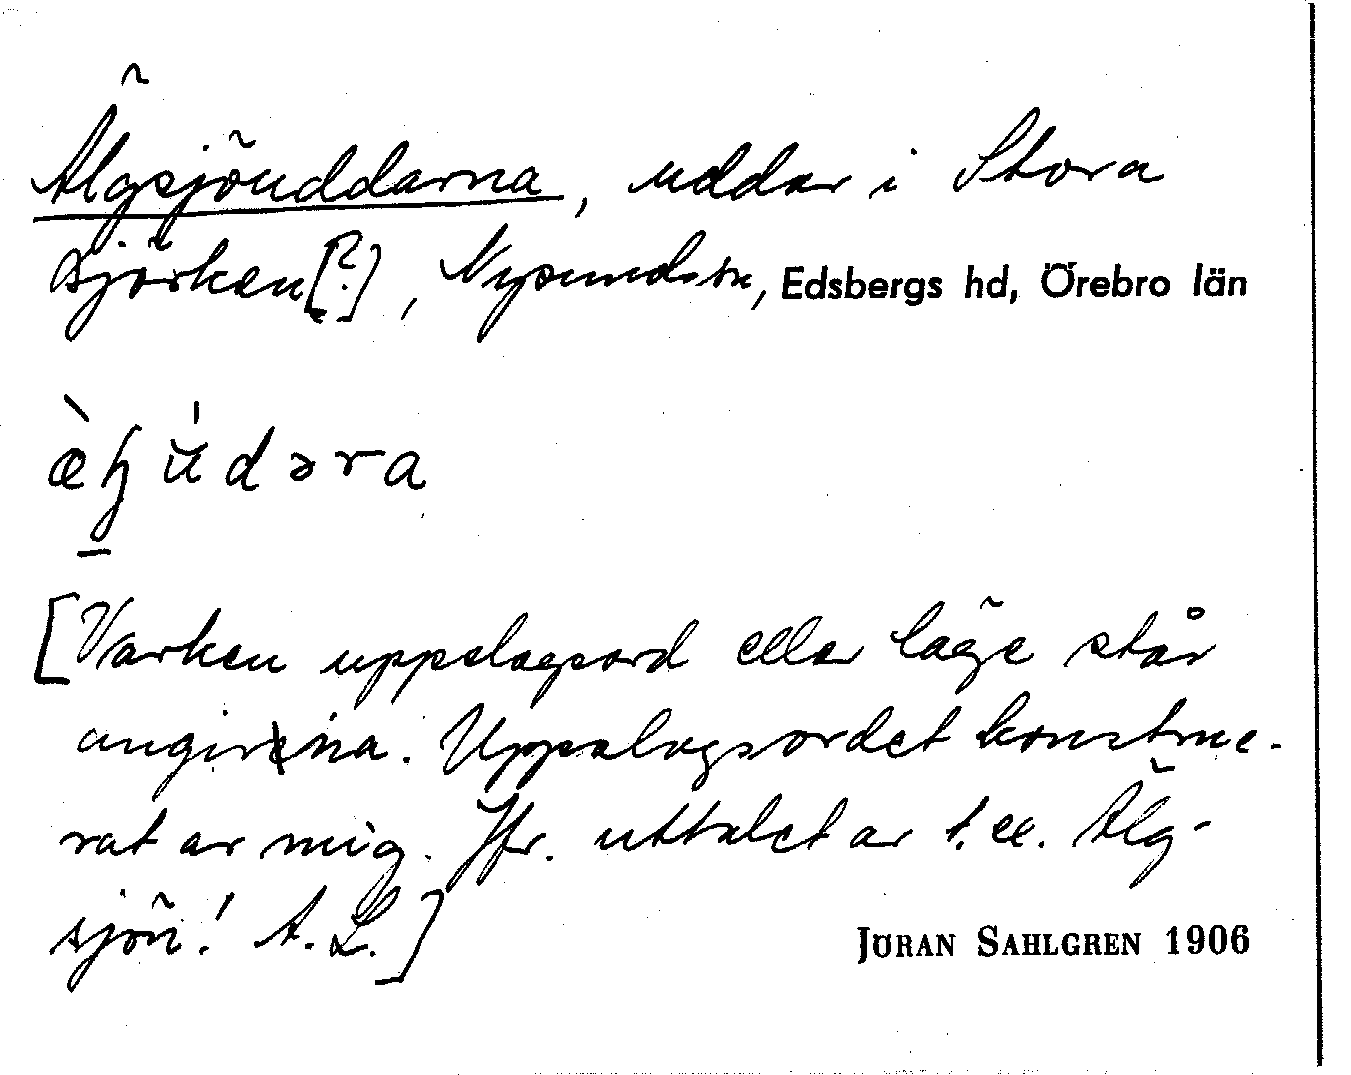 Älgsjöuddarna, uddar i Stora
Björken[?], Nysunds sn, Edsbergs hd, Örebro län
[Varken uppslagsord eller läge står
angivna. Uppslagsordet konstrue-
rat av mig. Jfr. uttalet av t.ex. Älg-
sjön! A.L.]
JÖRAN SAHLGREN 1906